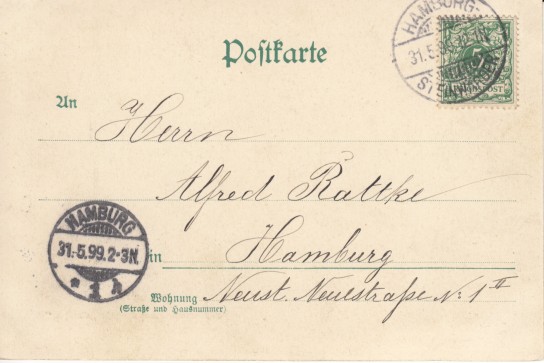 Postkarte
HAMBURG-
31.5.99. 12-1N.
STEINWÄRDER
5
REICHSPOST
An
Herrn
Alfred Rattke
in Hamburg
Wohnung Neust. Neuestraße No: 1 II
(Straße und Hausnummer)
HAMBURG
31.5.99.2-3N.
* 1 h